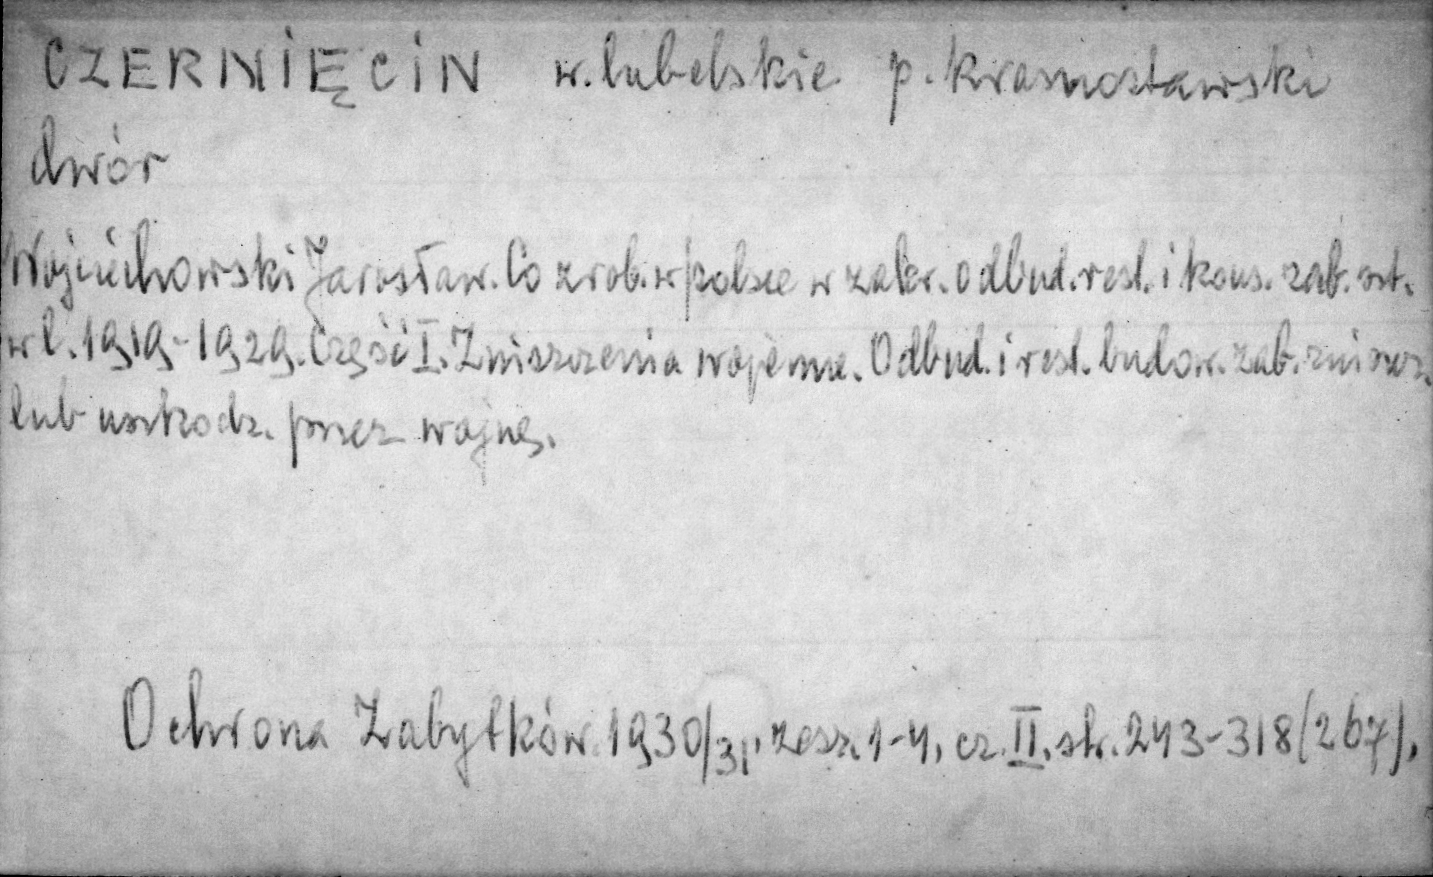 CZERNIĘCIN w. lubelskie p. krasnostawski
dwór
Wojciechowski Jarosław. Co zrob. w Polsce w zakr. odbud. rest. i kons. zab. szt.
w l. 1919-1929. Część I. Zniszczenia wojenne. Odbud. i rest. budow. zab. zniszcz.
lub uszkodz. przez wojnę.
Ochrona Zabytków. 1930/31, zesz. 1-4, cz. II, str. 243-318 (267).